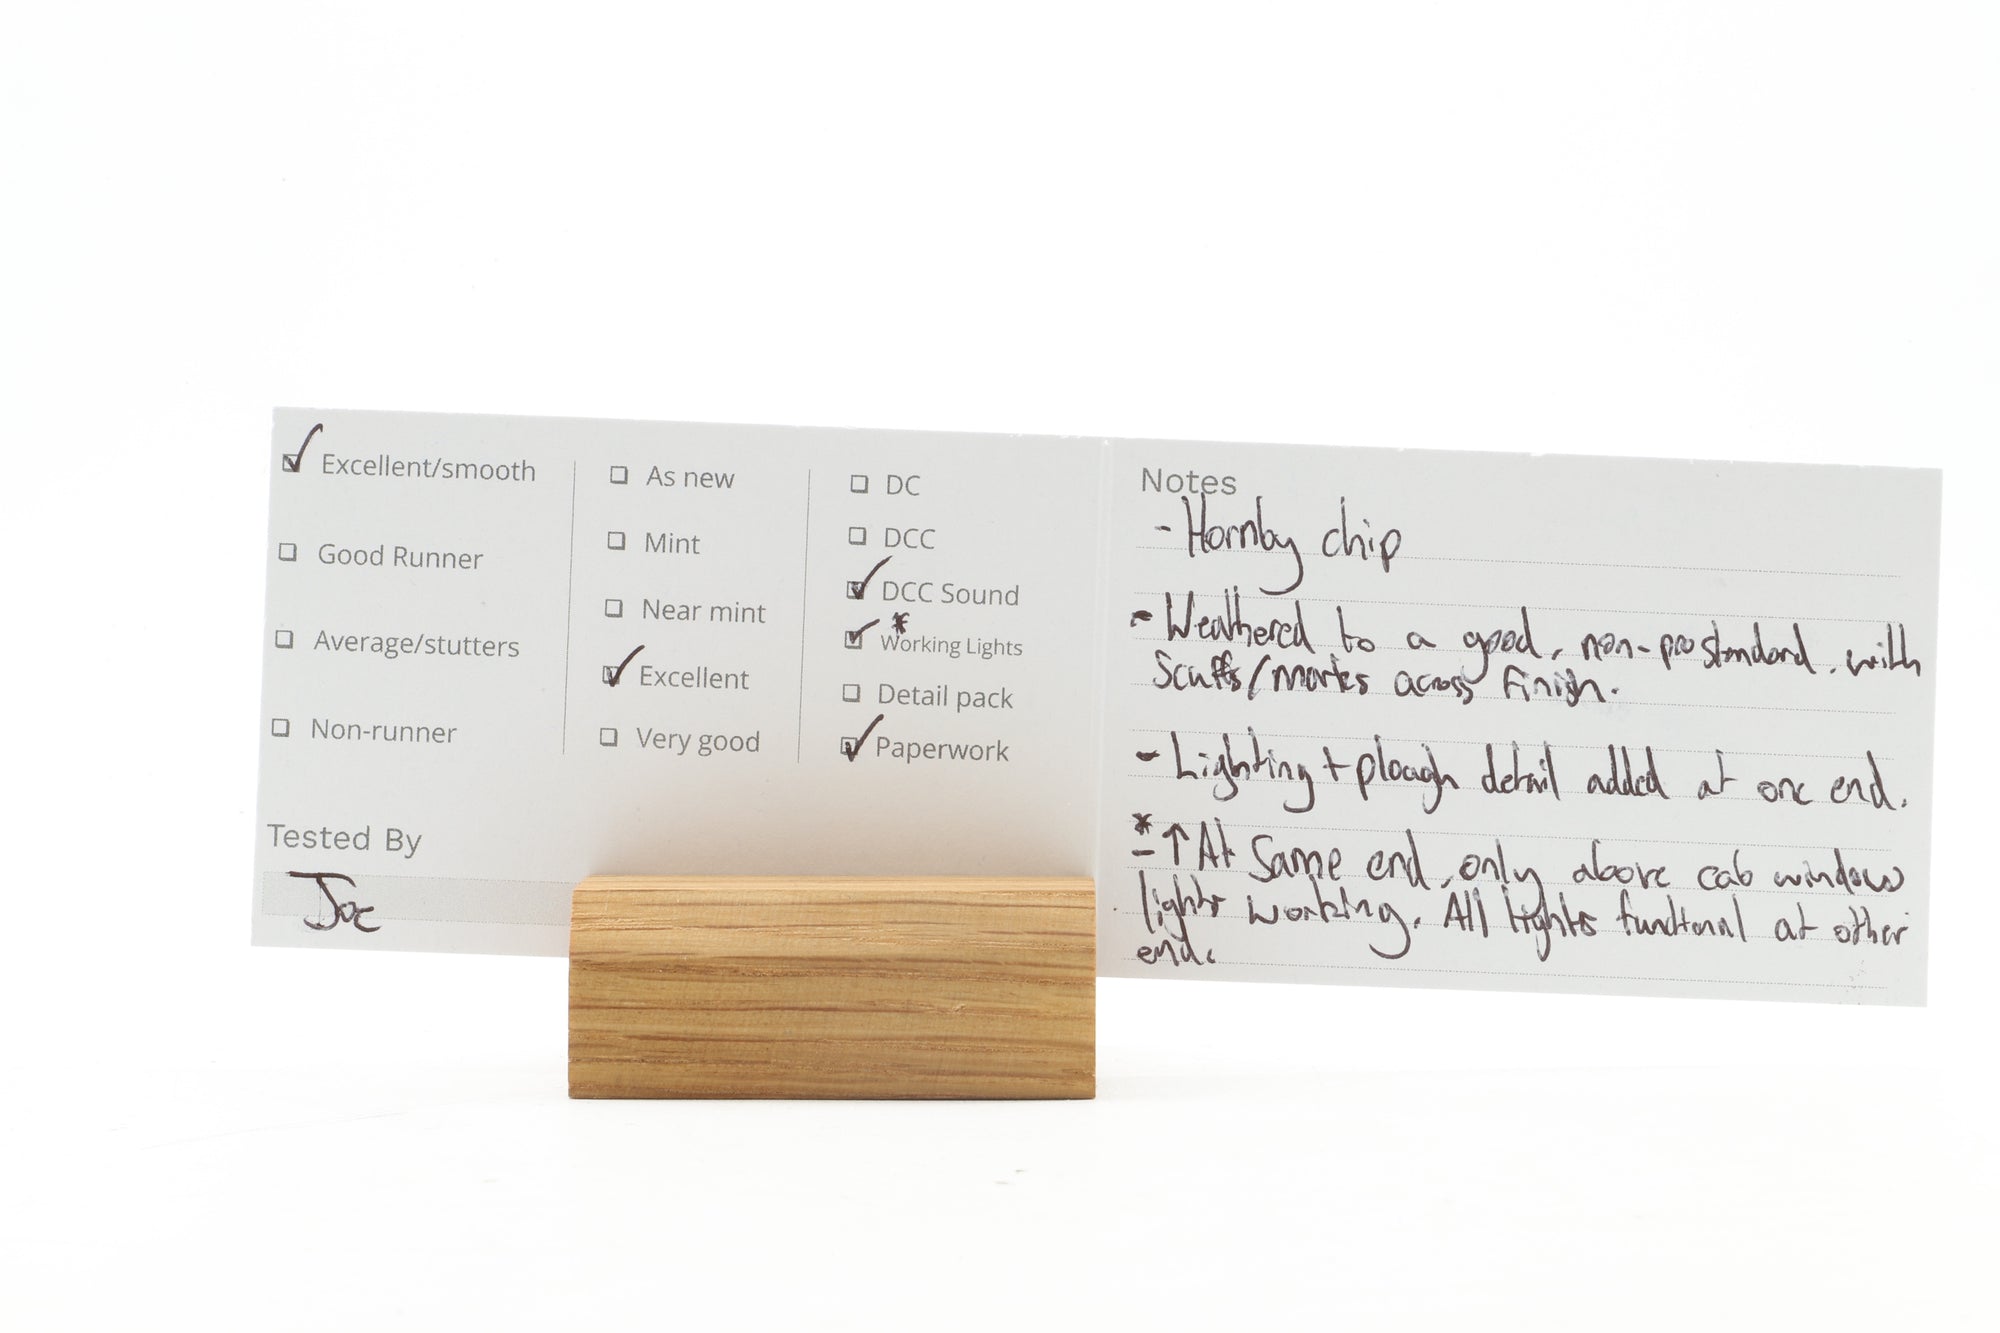 Excellent/smooth
Good Runner
Average/stutters
Non-runner
As new
Mint
Near mint
Excellent
Very good
DC
DCC
DCC Sound
*
Working Lights
Detail pack
Paperwork
Tested By
Joe
Notes
- Hornby chip
- Weathered to a good, non-pro standard, with
scuffs/marks across finish.
- Lighting + plough detail added at one end.
* - ↑ At same end, only above cab window
lights working. All lights functional at other
end.